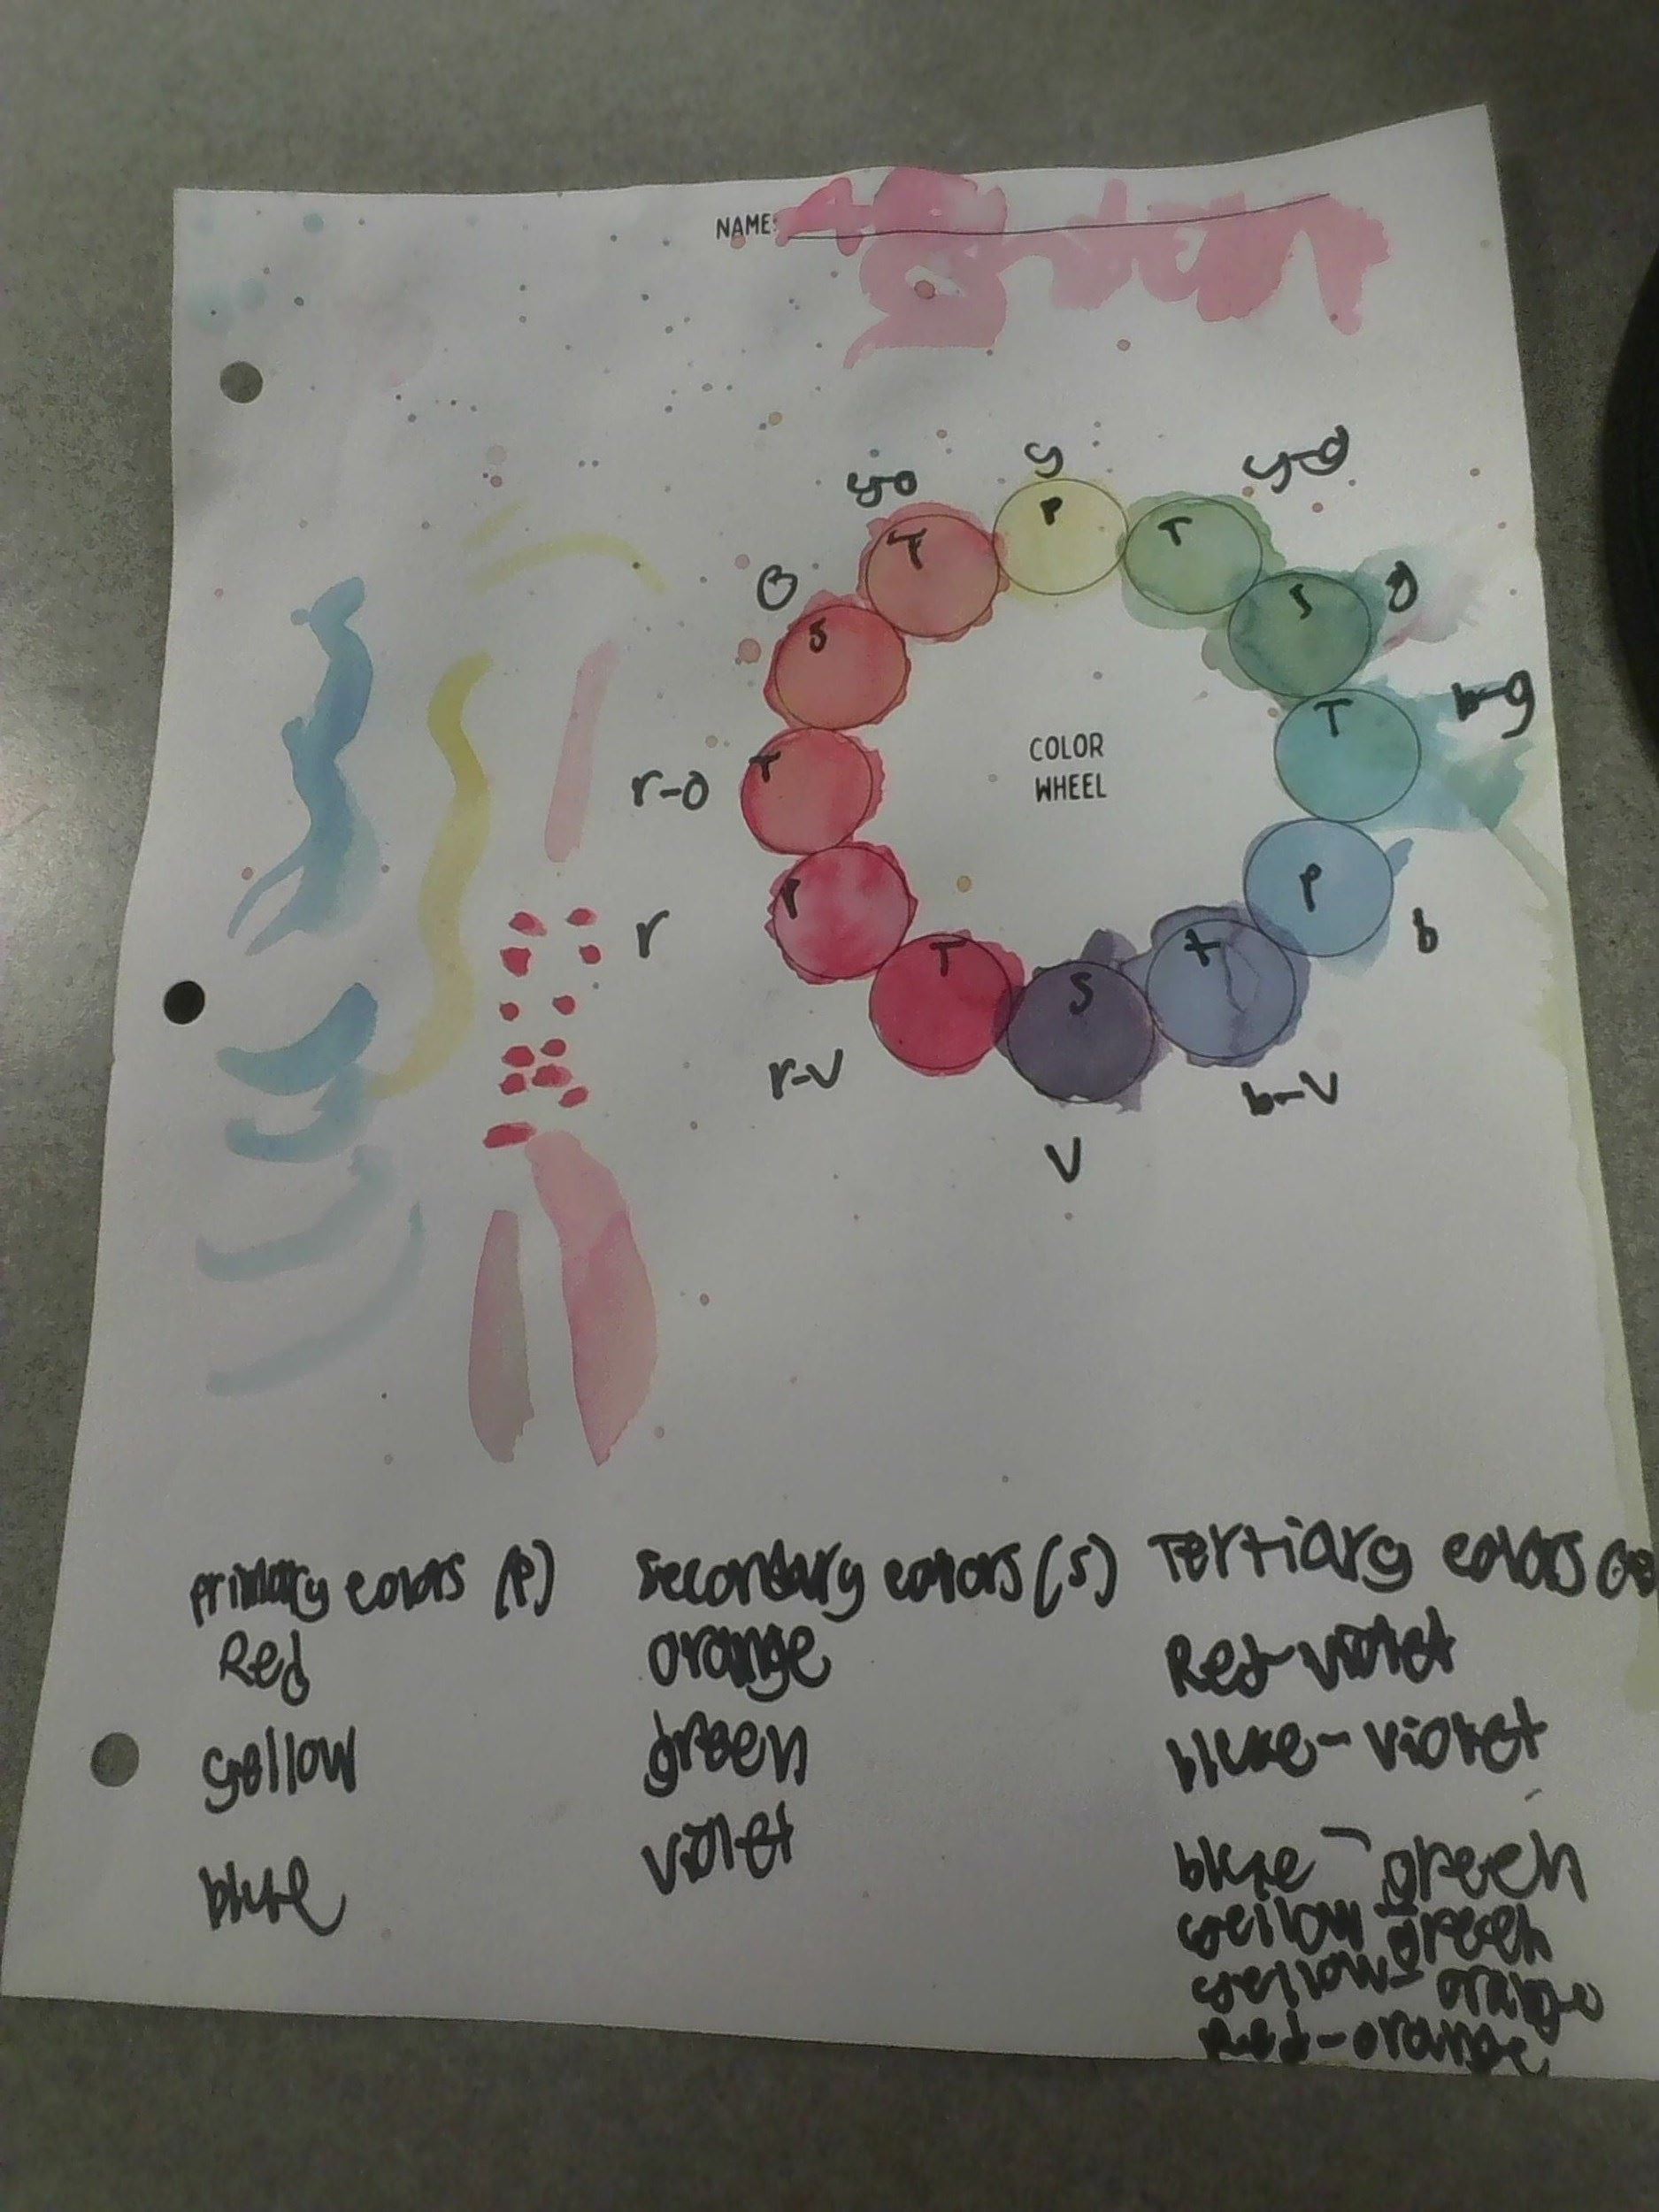 NAME:
y-o
y
y-g
O
g
b-g
r-o
COLOR
WHEEL
r
b
r-v
b-v
v
T
P
T
S
S
T
T
P
P
T
S
T
primary colors (P)
Red
yellow
blue
secondary colors (S)
orange
green
violet
Tertiary colors
Red-violet
blue-violet
blue-green
yellow-green
yellow-orange
Red-orange